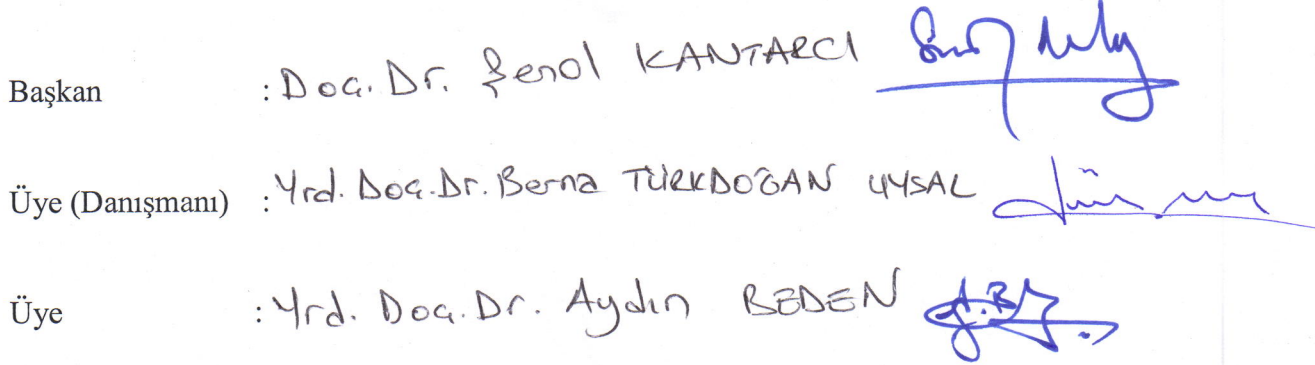 Başkan : Doç. Dr. Şenol KANTARCI
Üye (Danışmanı) : Yrd. Doç. Dr. Berna TÜRKDOĞAN UYSAL
Üye : Yrd. Doç. Dr. Aydın BEDEN